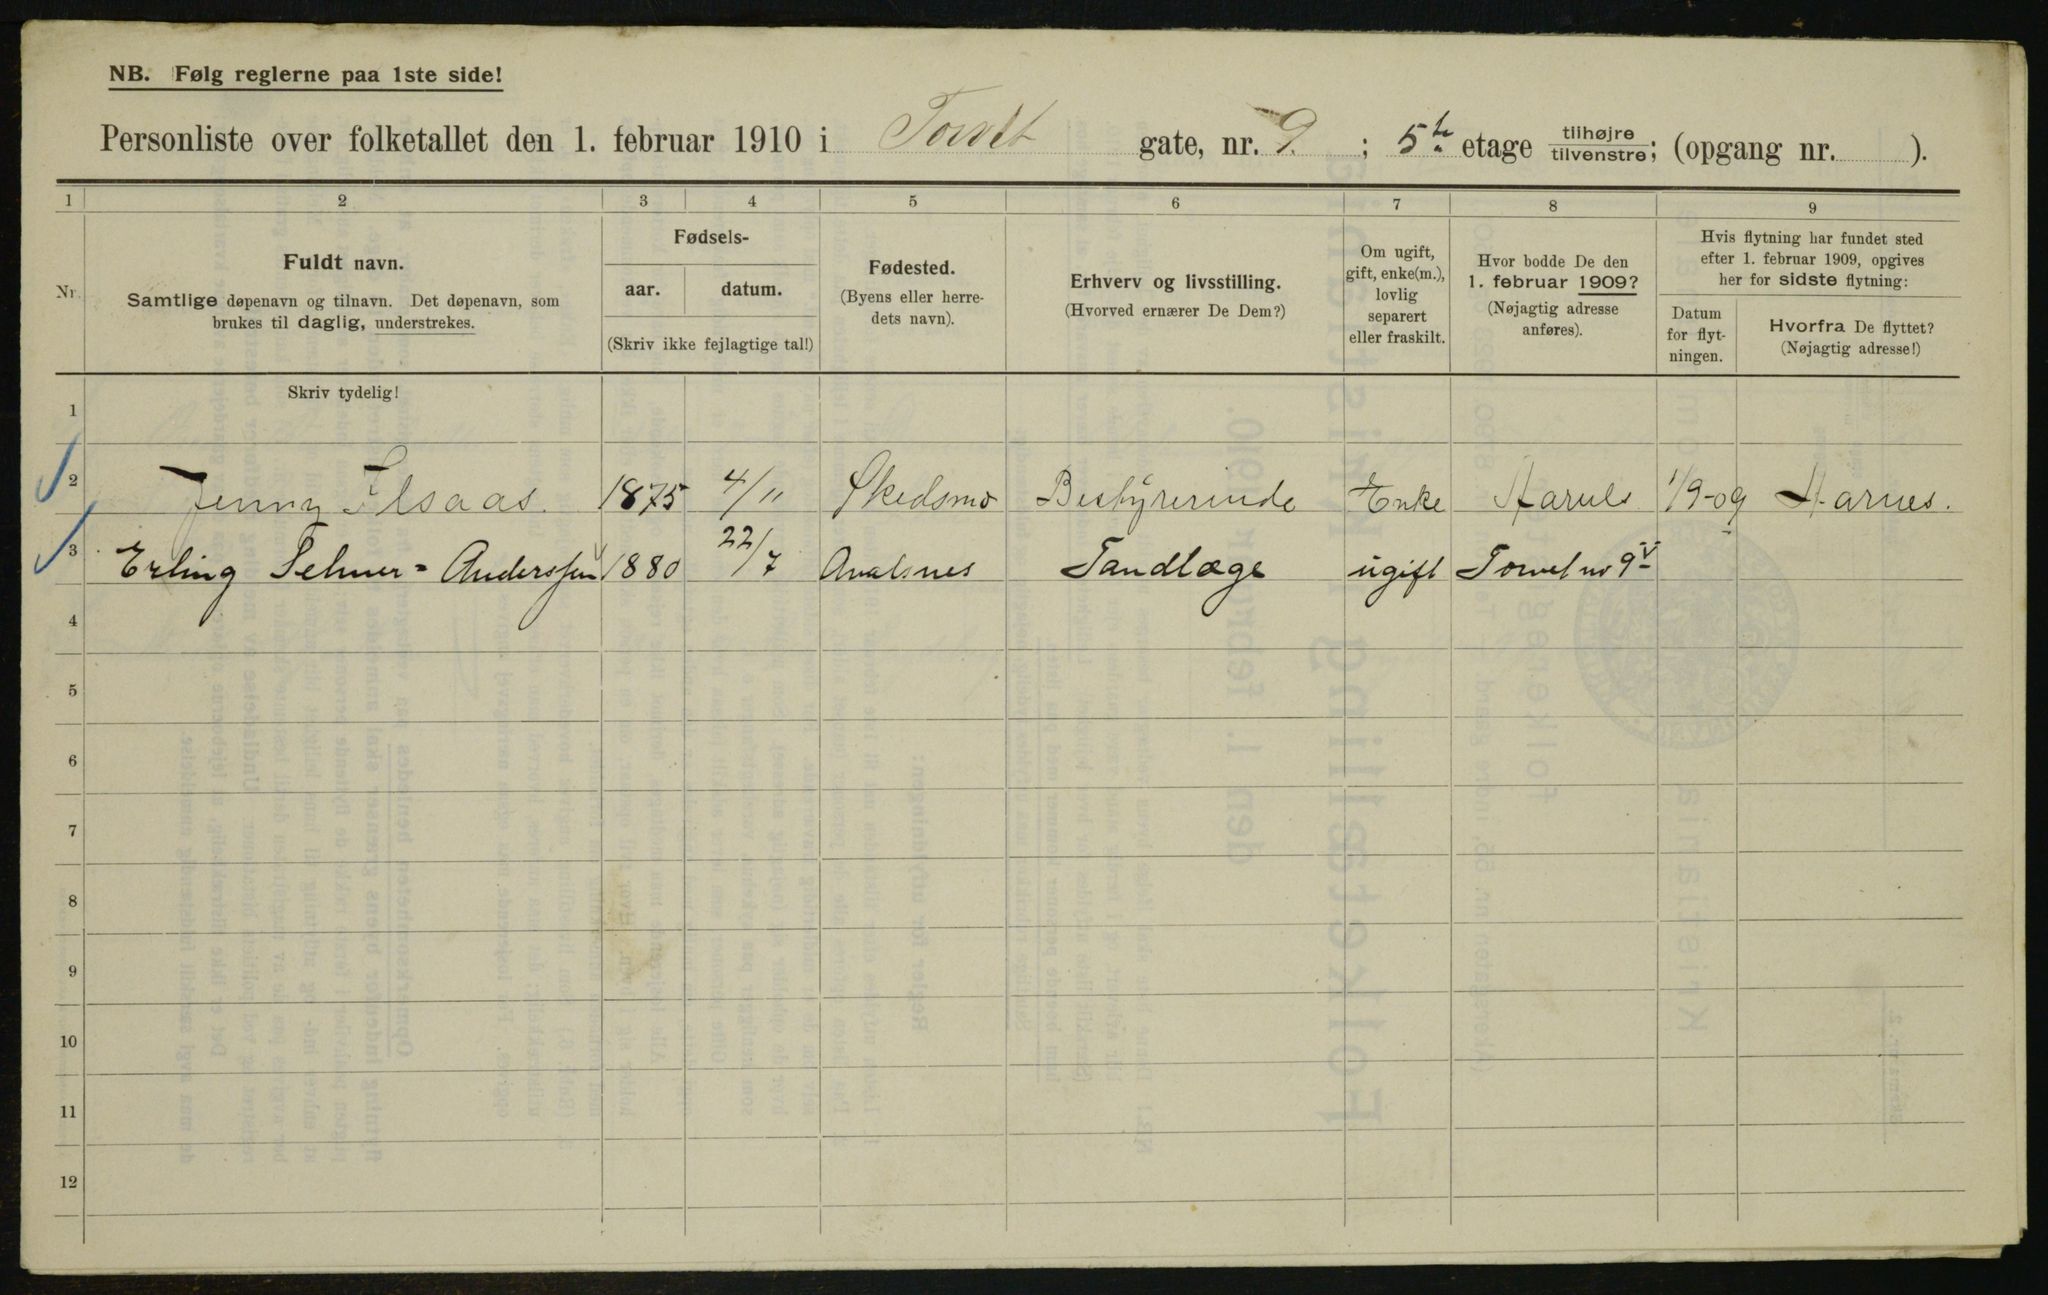 NB. Følg reglerne paa 1ste side!
Personliste over folketallet den 1. februar 1910 i Torvet gate, nr. 9. ; 5te etage tilhøjre/tilvenstre; (opgang nr. ).
1 2 3 4 5 6 7 8 9
Nr.
Fuldt navn.
Samtlige døpenavn og tilnavn. Det døpenavn, som
brukes til daglig, understrekes.
Fødsels-
aar. datum.
(Skriv ikke fejlagtige tal!)
Fødested.
(Byens eller herre-
dets navn).
Erhverv og livsstilling.
(Hvorved ernærer De Dem?)
Om ugift,
gift, enke(m.),
lovlig
separert
eller fraskilt.
Hvor bodde De den
1. februar 1909?
(Nøjagtig adresse
anføres).
Hvis flytning har fundet sted
efter 1. februar 1909, opgives
her for sidste flytning:
Datum
for flyt-
ningen.
Hvorfra De flyttet?
(Nøjagtig adresse!)
Skriv tydelig!
1
2 Jenny Ilsaas. 1875 4/11 Skedsmo Bestyrerinde Enke 1/9-09
3 Erling Telmer-Anderssen 1880 22/7 Avalsnes Tandlæge ugift Torvet no 9 V
4
5
6
7
8
9
10
11
12